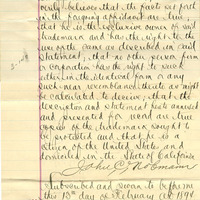 believes that the facts set forth
in the foregoing affidavit are true
that he is the exclusive owner of said
trademark and has the right to the
use of the same as described in said
statement, that no other person firm
or corporation has the right to such
either in the identical form or any
such near resemblance thereto as might
be calculated to deceive; that the
description and statement hereto annexed
and presented for record are true
copies of the trademark sought to
be protected and that he is a
citizen of the United States and
domiciled in the State of California
John C.
Subscribed and sworn to before me
this 13th day of February 1894